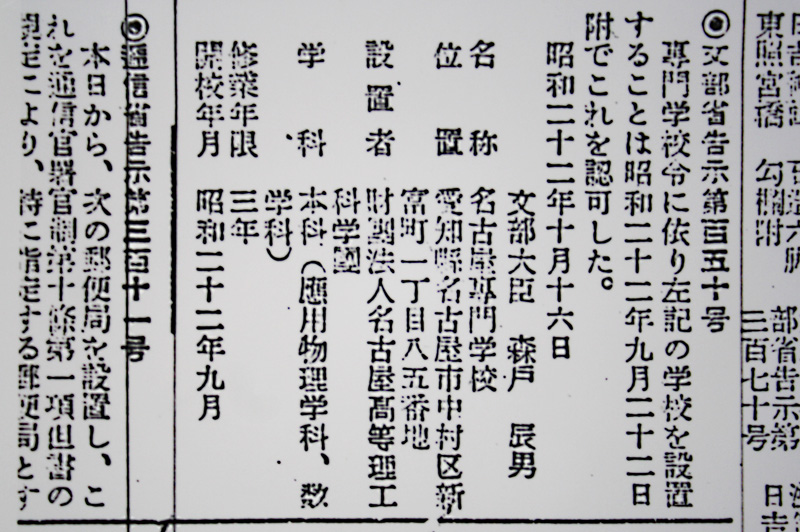 東照宮橋 勾欄附
部省告示第
三百七十号
◉文部省告示第百五十号
專門学校令に依り左記の学校を設置
することは昭和二十二年九月二十二日
附でこれを認可した。
昭和二十二年十月十六日
文部大臣 森戸 辰男
名称 名古屋專門学校
位置 愛知縣名古屋市中村区新
富町一丁目八五番地
設置者 財團法人名古屋高等理工
科学園
学科 本科(應用物理学科、数
学科)
修業年限 三年
開校年月 昭和二十二年九月
◉逓信省告示第三百十一号
本日から、次の郵便局を設置し、こ
れを逓信官署官制第十條第一項但書の
規定により、特に指定する郵便局とす